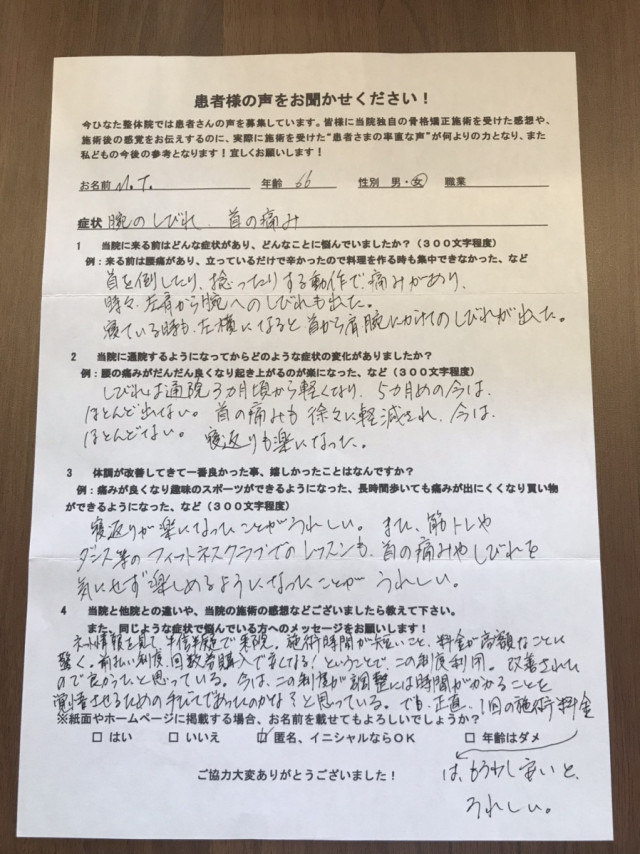 患者様の声をお聞かせください！
今ひなた整体院では患者さんの声を募集しています。皆様に当院独自の骨格矯正施術を受けた感想や、
施術後の感覚をお伝えするのに、実際に施術を受けた“患者さまの率直な声”が何よりの力となり、また
私どもの今後の参考となります！宜しくお願いします！
お名前 M.T. 年齢 66 性別 男・女 職業
症状 腕のしびれ、首の痛み
1 当院に来る前はどんな症状があり、どんなことに悩んでいましたか？（３００文字程度）
例：来る前は腰痛があり、立っているだけで辛かったので料理を作る時も集中できなかった、など
首を倒したり、捻ったりする動作で痛みがあり、
時々、左肩から腕へのしびれも出た。
寝ている時も、左横になると首から肩腕にかけてのしびれが出た。
2 当院に通院するようになってからどのような症状の変化がありましたか？
例：腰の痛みがだんだん良くなり起き上がるのが楽になった、など（３００文字程度）
しびれは通院３カ月頃から軽くなり、５カ月めの今は、
ほとんど出ない。首の痛みも徐々に軽減され、今は、
ほとんどない。寝返りも楽になった。
3 体調が改善してきて一番良かった事、嬉しかったことはなんですか？
例：痛みが良くなり趣味のスポーツができるようになった、長時間歩いても痛みが出にくくなり買い物
ができるようになった、など（３００文字程度）
寝返りが楽になったことがうれしい。また、筋トレや
ダンス等のフィットネスクラブでのレッスンも、首の痛みやしびれを
気にせず楽しめるようになったことがうれしい。
4 当院と他院との違いや、当院の施術の感想などございましたら教えて下さい。
また、同じような症状で悩んでいる方へのメッセージをお願いします！
ネット情報を見て、半信半疑で来院。施術時間が短いこと、料金が高額なことに
驚く。前払い制度、回数券購入で安くなる！ということで、この制度利用。改善された
ので良かったと思っている。今は、この制度が調整には時間がかかることを
覚悟させるための手だてであったのかな？と思っている。でも、正直、１回の施術料金
は、もう少し安いと、
うれしい。
※紙面やホームページに掲載する場合、お名前を載せてもよろしいでしょうか？
□ はい □ いいえ ☑ 匿名、イニシャルならＯＫ □ 年齢はダメ
ご協力大変ありがとうございました！